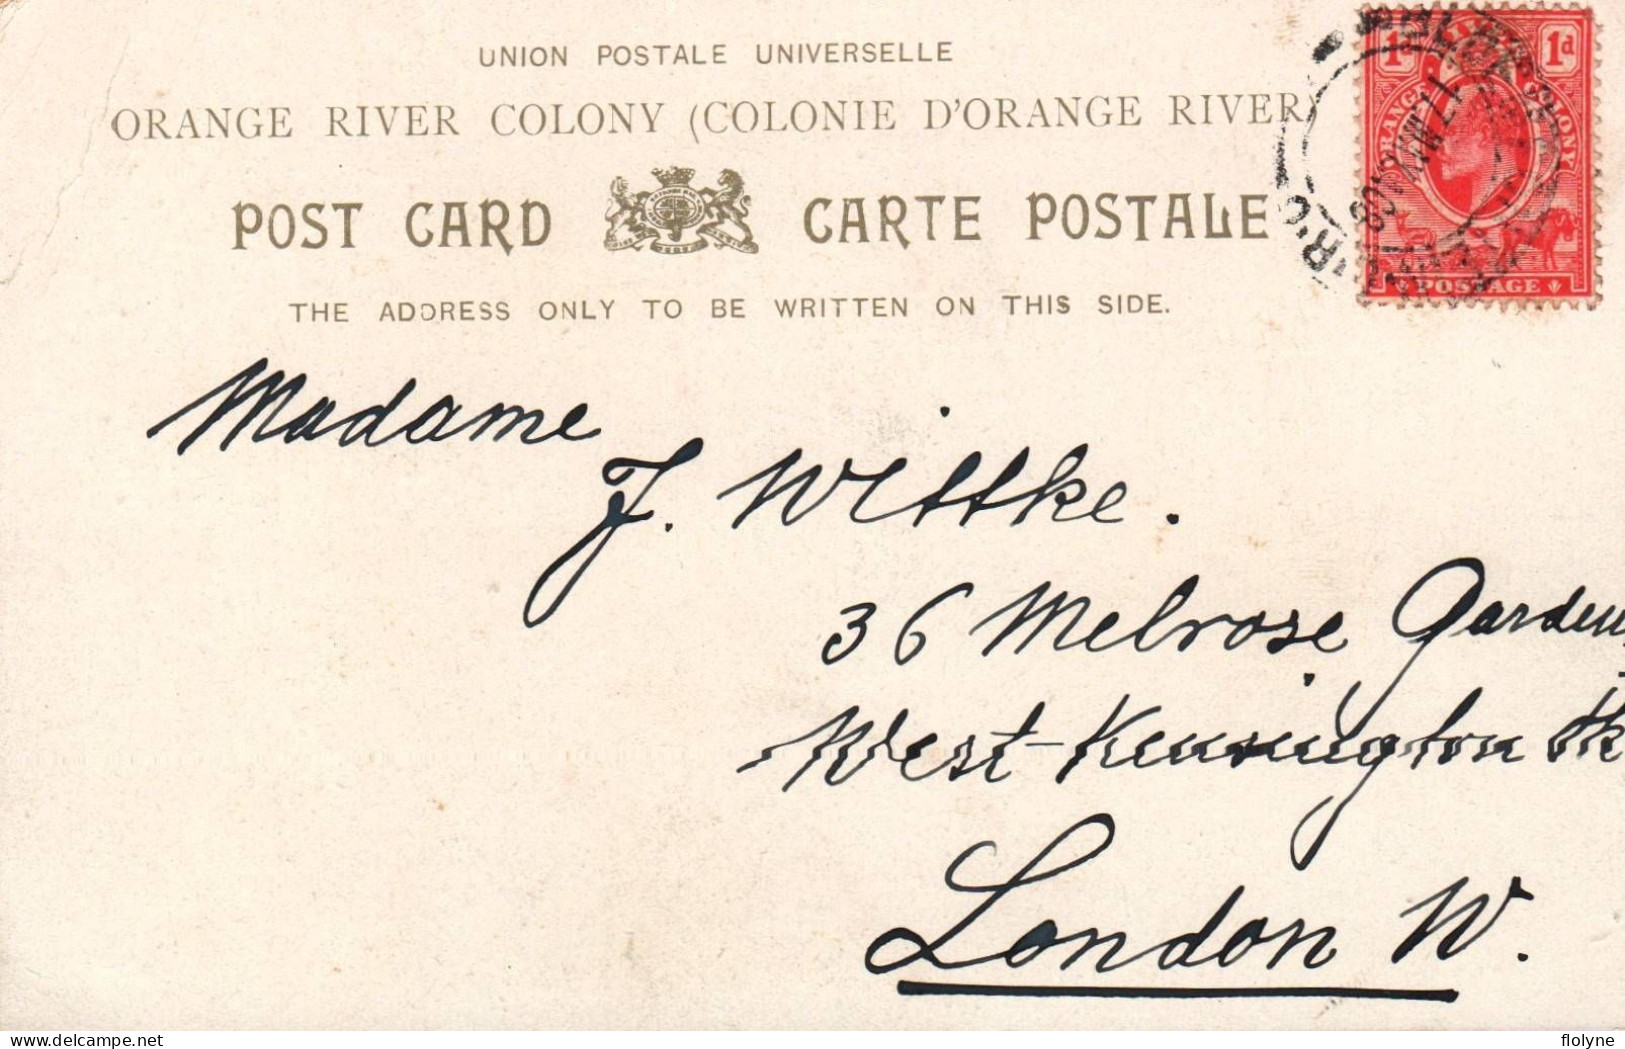 UNION POSTALE UNIVERSELLE
ORANGE RIVER COLONY (COLONIE D'ORANGE RIVER)
POST CARD CARTE POSTALE
THE ADDRESS ONLY TO BE WRITTEN ON THIS SIDE.
1d 1d
POSTAGE
Madame
J. Wittke.
36 Melrose Garden
West-Kensington Pk
London W.
delcampe.net
flolyne